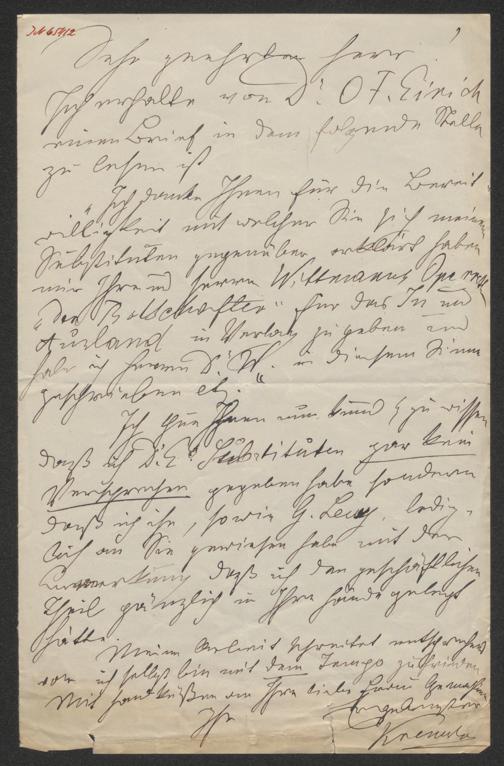 Sehr geehrter Herr!
Ich erhalte von Dr. O. F. Eirich
einen Brief in dem folgende Stelle
zu lesen ist
"Ich danke Ihnen für die Bereit-
willigkeit mit welcher Sie sich meinem
Substituten gegenüber erklärt haben
mir Ihre und Herrn Wittmanns Operette
"Der Botschafter" für das In und
Ausland in Verlag zu geben und
habe ich Herrn Dr. W. in diesem Sinne
geschrieben etz."
Ich thue Ihnen nun kund & zu wissen
daß ich Dr. E's Substituten gar kein
Versprechen gegeben habe sondern
daß ich ihn, sowie G. Lewy, ledig-
lich an Sie gewiesen habe mit der
Bemerkung daß ich den geschäftlichen
Theil gänzlich in Ihre Hände gelegt
hätte.
Meine Arbeit schreitet entsprechend
vor ich selbst bin mit dem Tempo zufrieden
Mit Handküssen an Ihre liebe Frau Gemahlin
Ihr ergebenster
Kremser